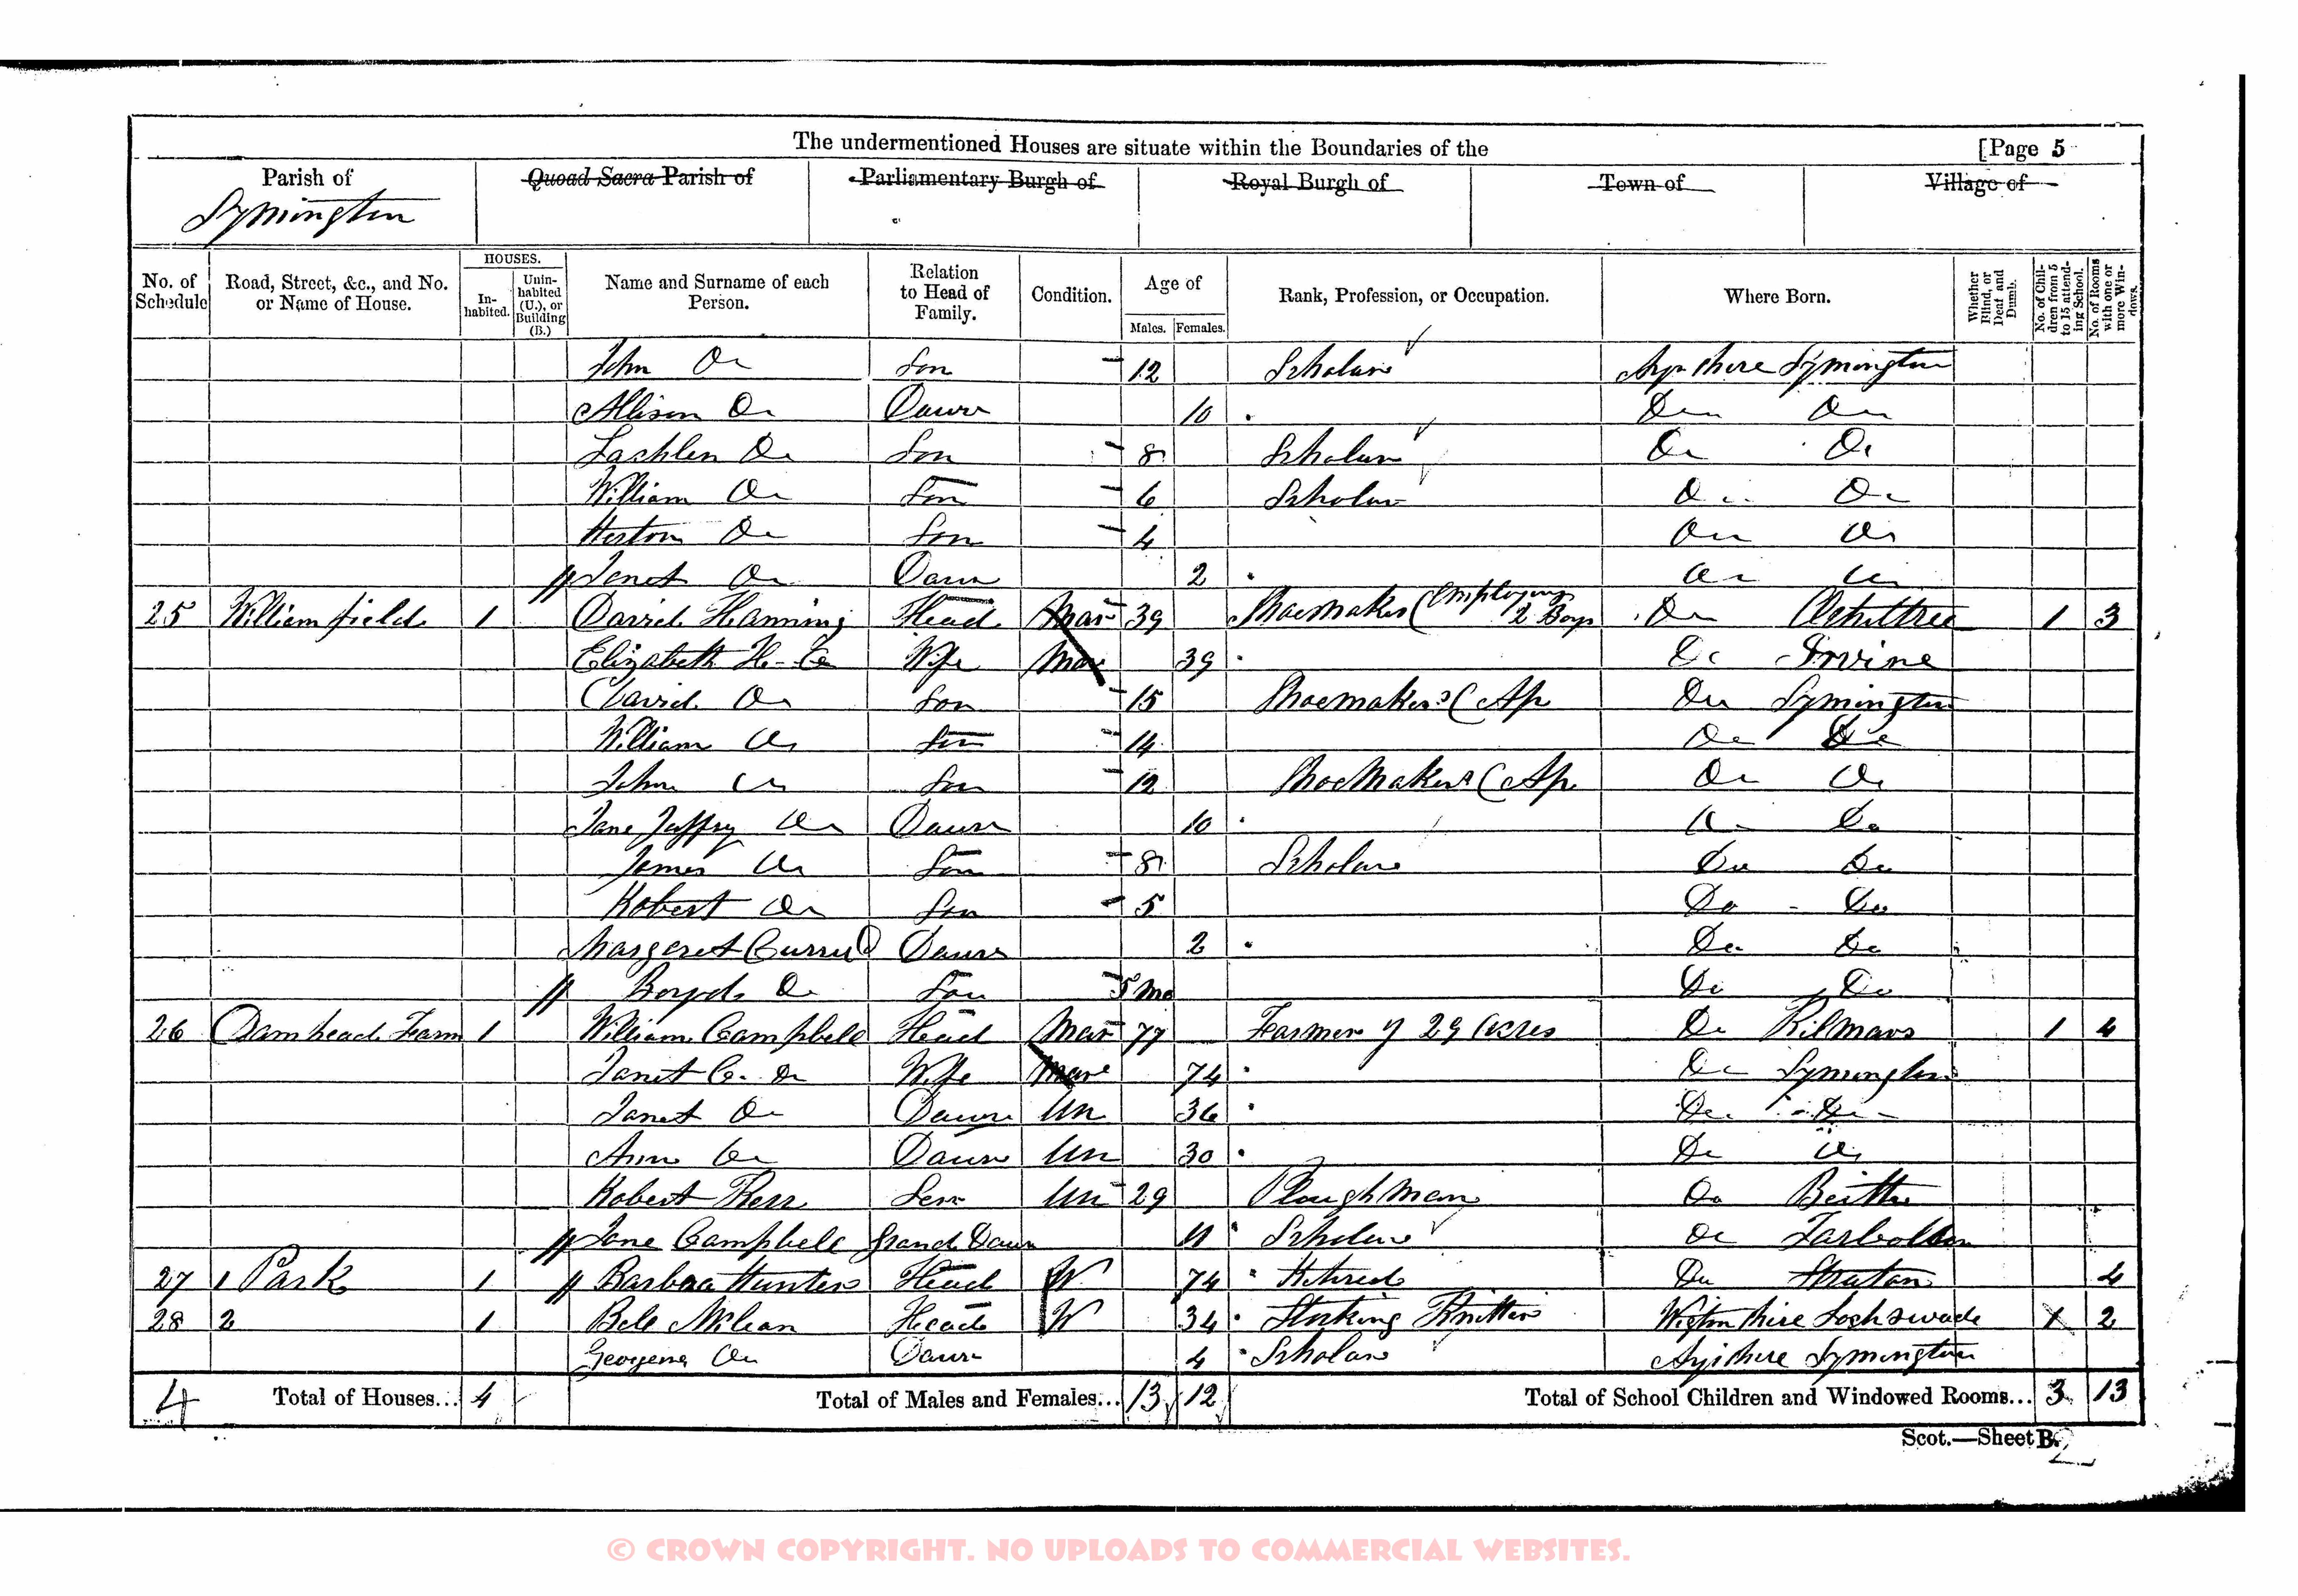 The undermentioned Houses are situate within the Boundaries of the [Page 5
Parish of Quoad Sacra Parish of Parliamentary Burgh of Royal Burgh of Town of Village of
Symington
No. of Schedule Road, Street, &c., and No. or Name of House. HOUSES. Inhabited. Uninhabited (U.), or Building (B.) Name and Surname of each Person. Relation to Head of Family. Condition. Age of Males. Females. Rank, Profession, or Occupation. Where Born. Whether Blind, or Deaf and Dumb. No. of Children from 5 to 15 attending School. No. of Rooms with one or more Windows.
John Do Son 12 Scholar Ayrshire Symington
Allison Do Daur 10 Do Do
Lachlen Do Son 8 Scholar Do Do
William Do Son 6 Scholar Do Do
Do Son 4 Do Do
Janet Do Daur 2 Do Do
25 Williamfield 1 David Hanning Head Mar 39 Shoemaker (Employing 2 Boys Do Ochiltree 1 3
Elizabeth H. Do Wife Mar 39 Do Irvine
David Do Son 15 Shoemaker's (Ap Do Symington
William Do Son 14 Do Do
John Do Son 12 Shoemaker's (Ap Do Do
Jane Jaffry Do Daur 10 Do Do
James Do Son 8 Scholar Do Do
Robert Do Son 5 Do Do
Margaret Currie D Daur 2 Do Do
Boyd Do Son 5 Mo Do Do
26 Damhead Farm 1 William Campbell Head Mar 77 Farmer of 29 Acres Do Kilmars 1 4
Janet C. Do Wife Mar 74 Do Symington
Janet Do Daur Un 36 Do Do
Ann Do Daur Un 30 Do Do
Robert Kerr Serv Un 29 Ploughman Do Beith
Jane Campbell Grand Daur 11 Scholar Do Tarbolton
27 1 Park 1 Barbra Hunter Head W 74 Retired Do Straton 4
28 2 1 Bell McLean Head W 34 Stocking Knitter Wigtonshire 1 2
Georgena Do Daur 4 Scholar Ayrshire Symington
4 Total of Houses... 4 Total of Males and Females... 13 12 Total of School Children and Windowed Rooms... 3 13
Scot.—Sheet B. 2
© CROWN COPYRIGHT. NO UPLOADS TO COMMERCIAL WEBSITES.